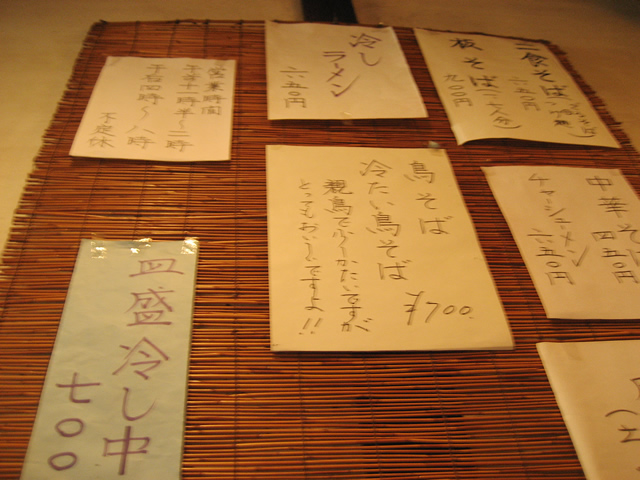 営業時間
午前十一時半〜二時
午后四時〜八時
不定休
冷し
ラーメン
六五〇円
二食そば
六五〇円
板そば(二人分)
九〇〇円
鳥そば
冷たい鳥そば
¥700.
親鳥で少しかたいですが
とってもおいしいですよ!!
中華そば
四五〇円
チャーシューメン
六五〇円
皿盛冷し中
七〇〇